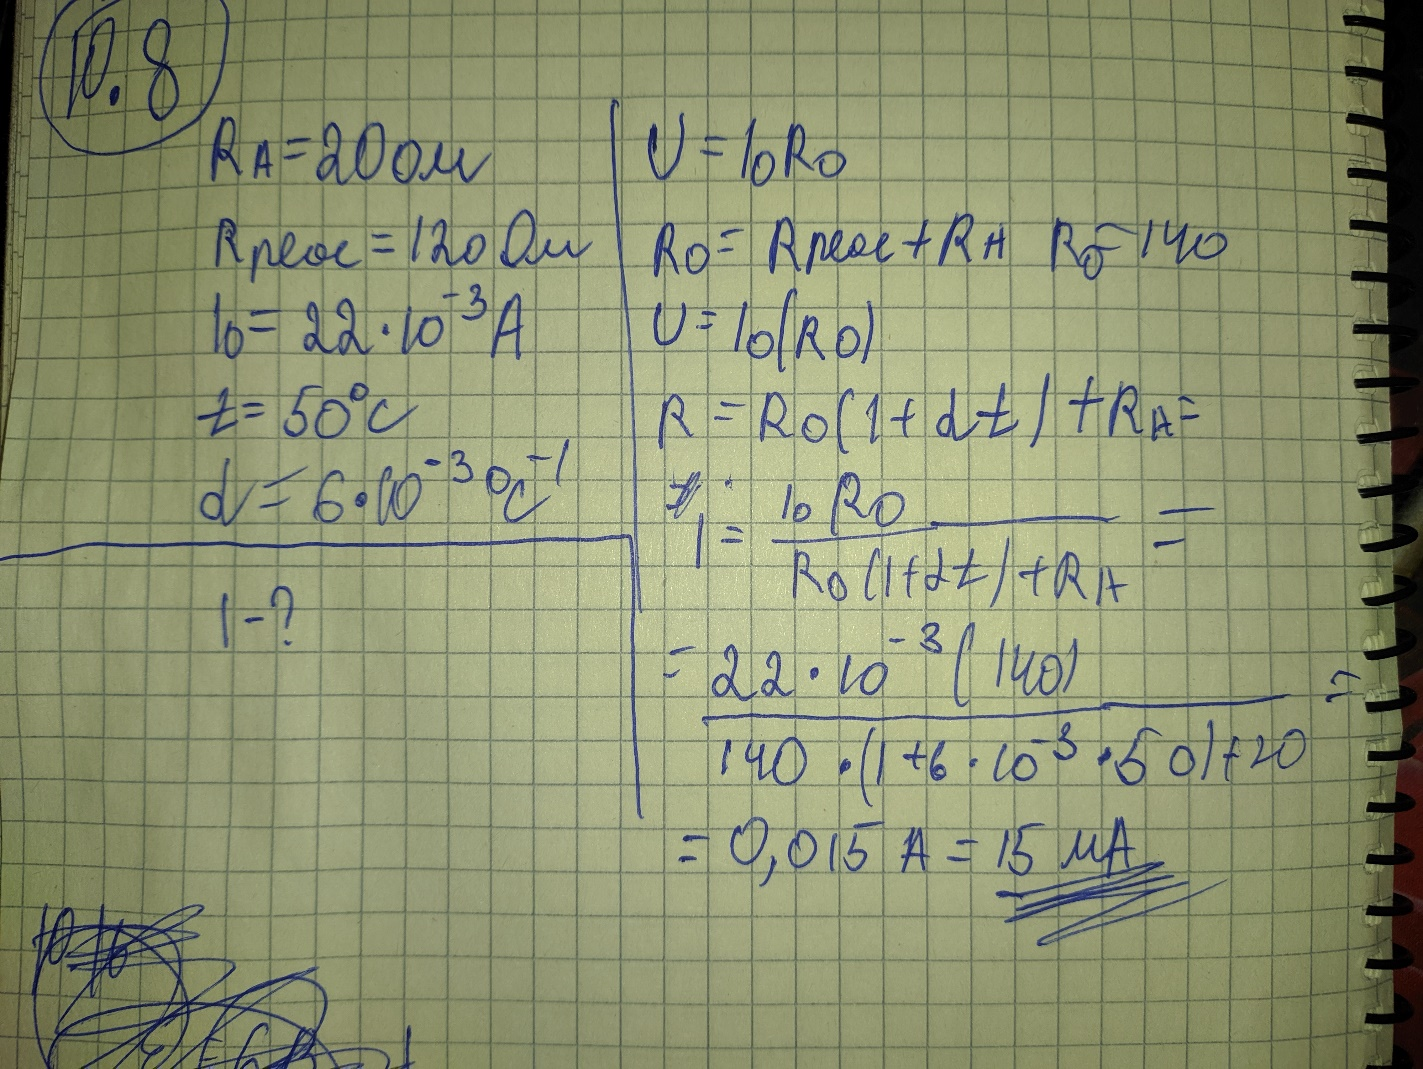 10.8
RA=20ом
Rреос=120Ом
I0=22·10⁻³А
t=50°C
α=6·10⁻³ °C⁻¹
I-?
U=I0R0
R0=Rреос+RA R0=140
U=I0(R0)
R=R0(1+αt)+RA=
I= I0R0 / R0(1+αt)+RA =
= 22·10⁻³(140) / 140·(1+6·10⁻³·50)+20 =
=0,015 А=15 мА